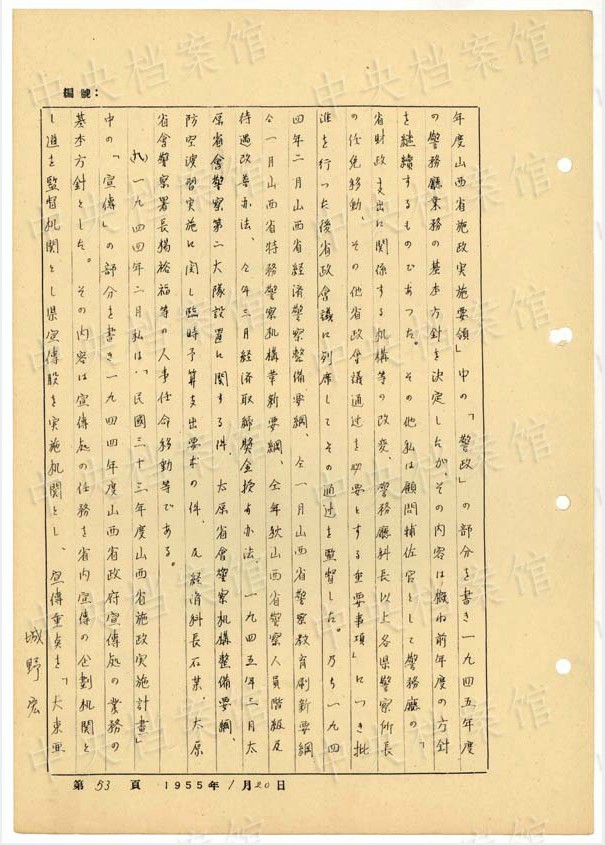 編號：
年度山西省施政実施要領」中の「警政」の部分を書き一九四五年度
の警務廳業務の基本方針を決定したが、その内容は概ね前年度の方針
を継續するものであつた。その他私は顧問輔佐官として警務廳の「
省財政支出に関係する机構等の改変、警務廳科長以上各県警察所長
の任免移動、その他省政会議通过を必要とする重要事項」につき批
准を行つた後省政会議に列席してその通过を監督した。乃ち一九四
四年二月山西省経済警察整備要綱、仝一月山西省警察教育刷新要綱
仝一月山西省特務警察机構革新要綱、仝年秋山西省警察人員階級及
待遇改善办法、仝年三月経済取締奨金授与办法、一九四五年三月太
原省會警察第二大隊設置に関する件、太原省會警察机構整備要綱、
防空演習実施に関し臨時予算支出要求の件、及経済科長石某、太原
省會警察署長楊裕福等の人事任命移動等である。
一九四四年二月私は、「民國三十三年度山西省施政実施計畫」
中の「宣傳」の部分を書き一九四四年度山西省政府宣傳処の業務の
基本方針とした。その内容は宣傳処の任務を省内宣傳の企劃机関と
し道を監督机関とし県宣傳股を実施机関とし、宣傳重貞を「大東亜
城野宏
第 53 頁 1955年1月20日
中央档案馆